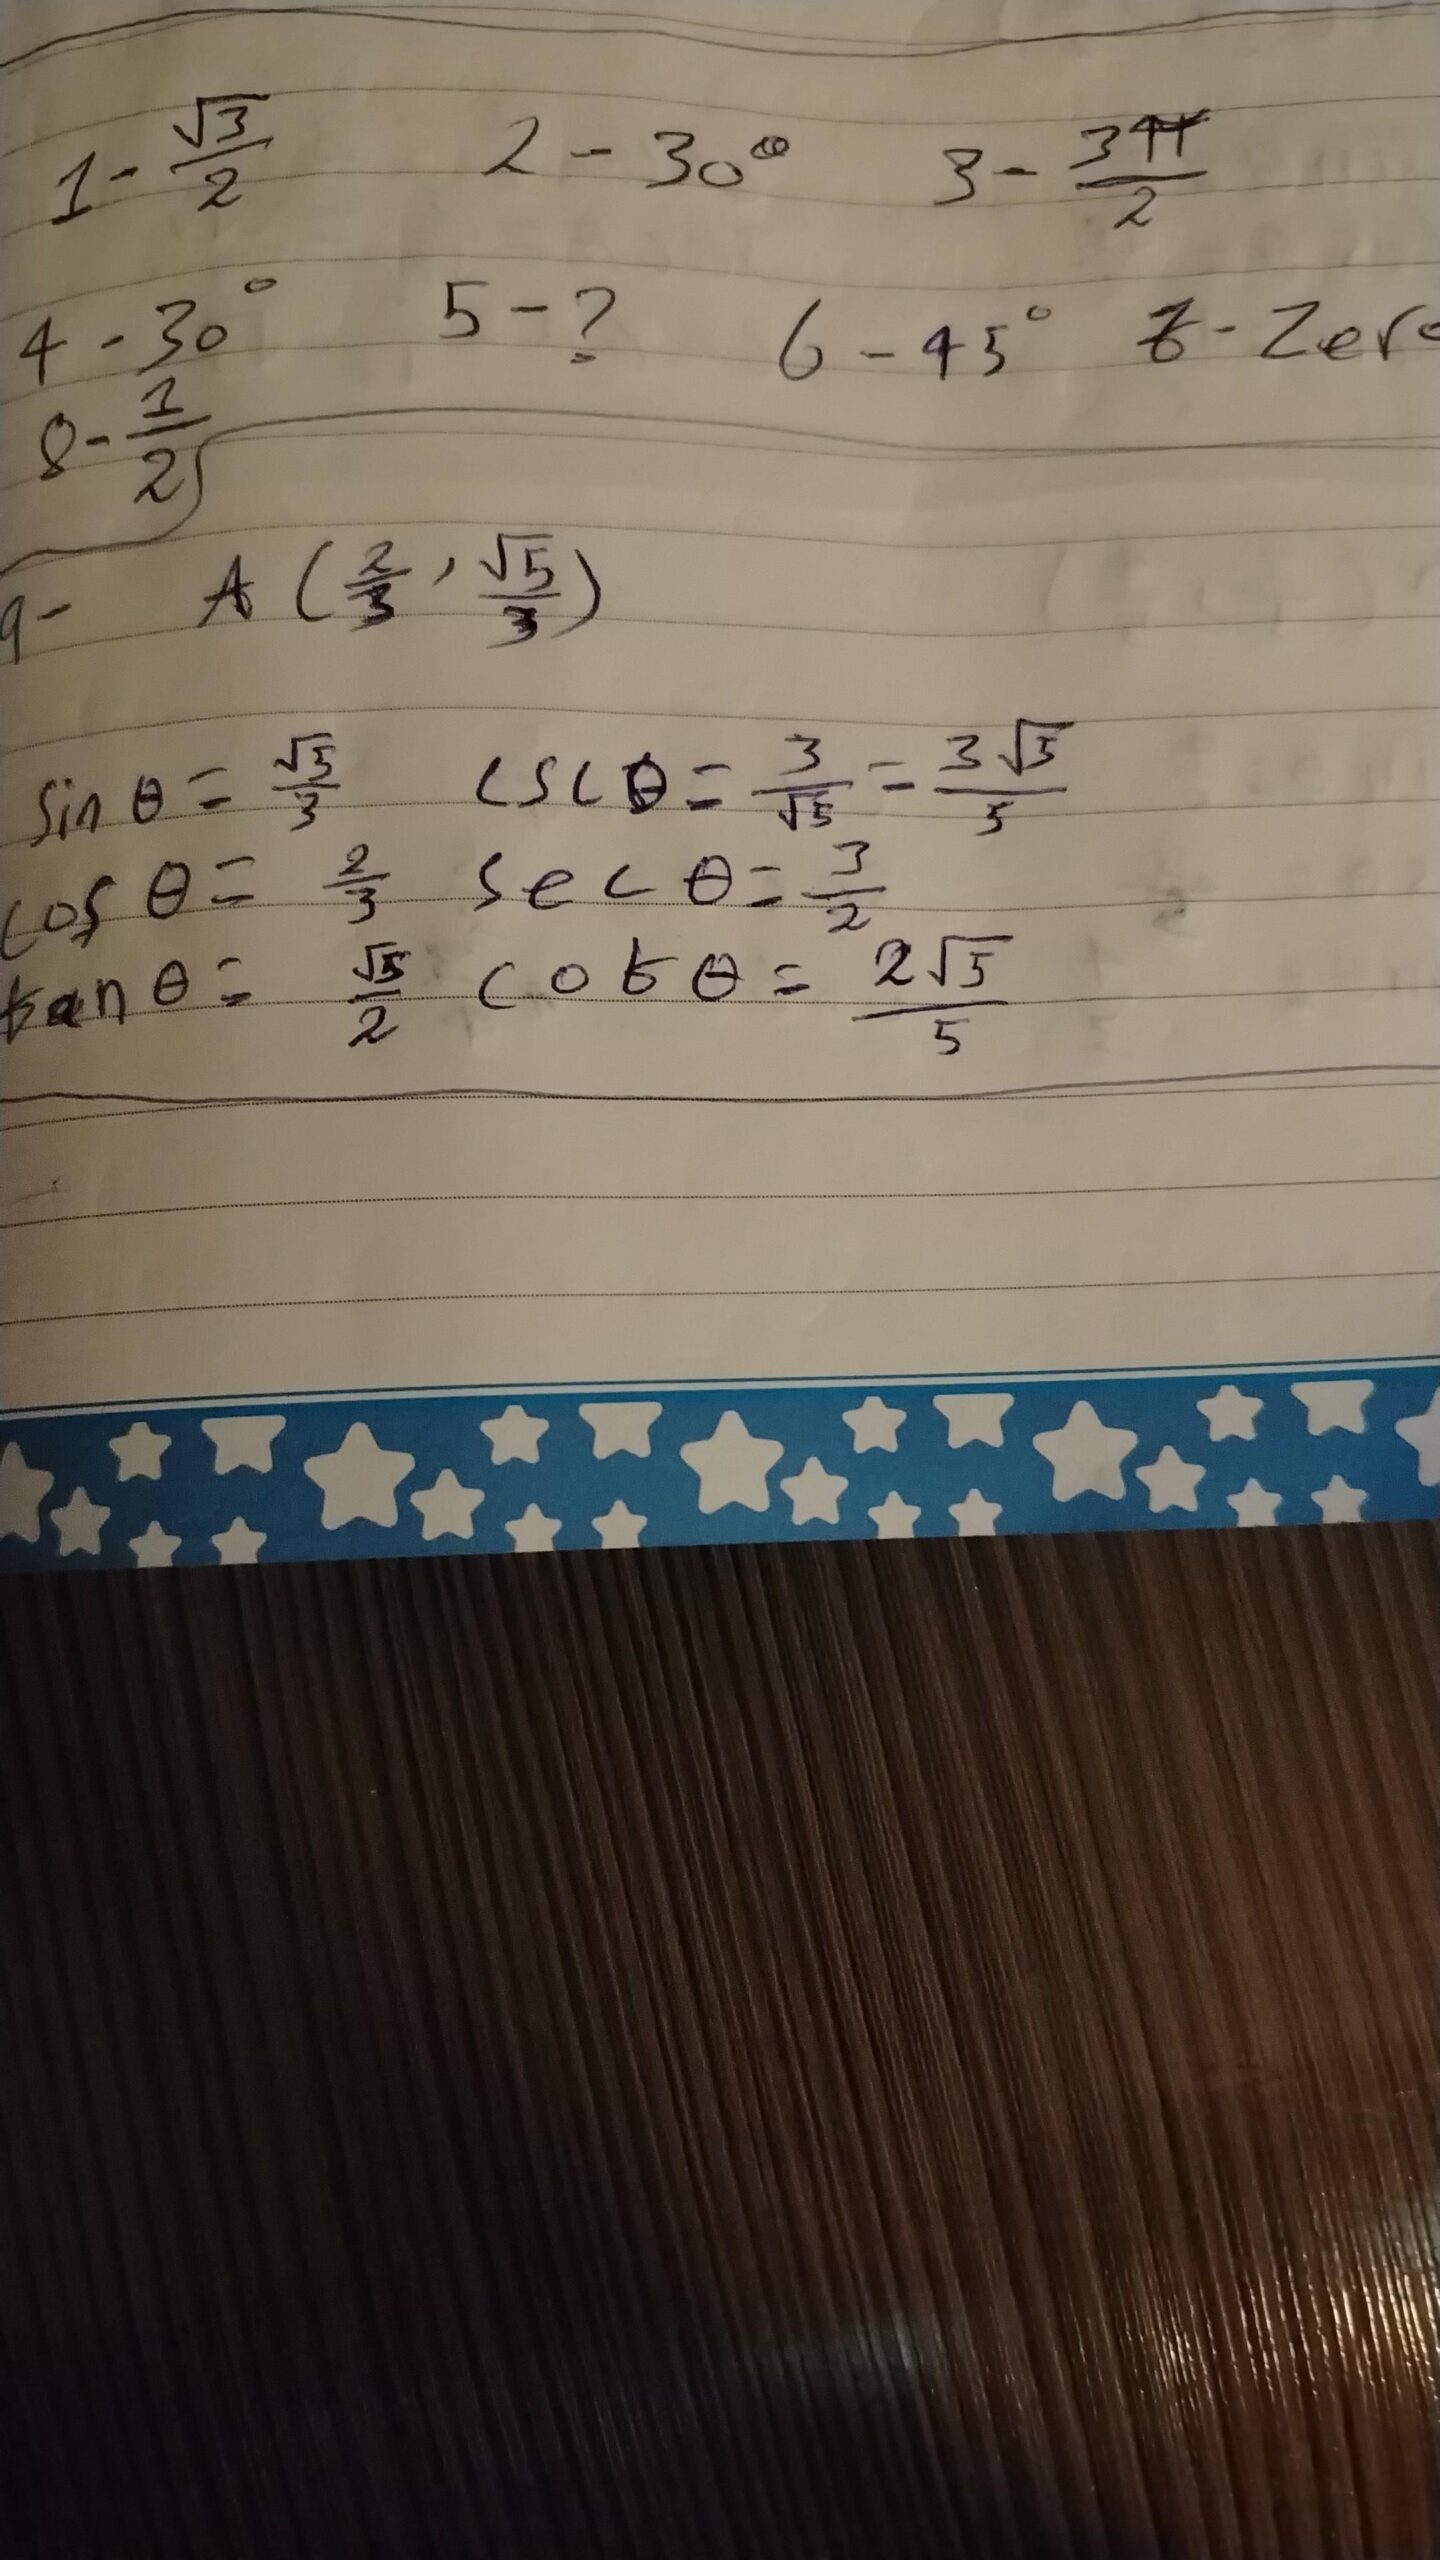 1 - √3/2 2 - 30° 3 - 3π/2
4 - 30° 5 - ? 6 - 45° 7 - Zero
8 - 1/2
9 - A (2/3, √5/3)
sin θ = √5/3 csc θ = 3/√5 = 3√5/5
cos θ = 2/3 sec θ = 3/2
tan θ = √5/2 cot θ = 2√5/5